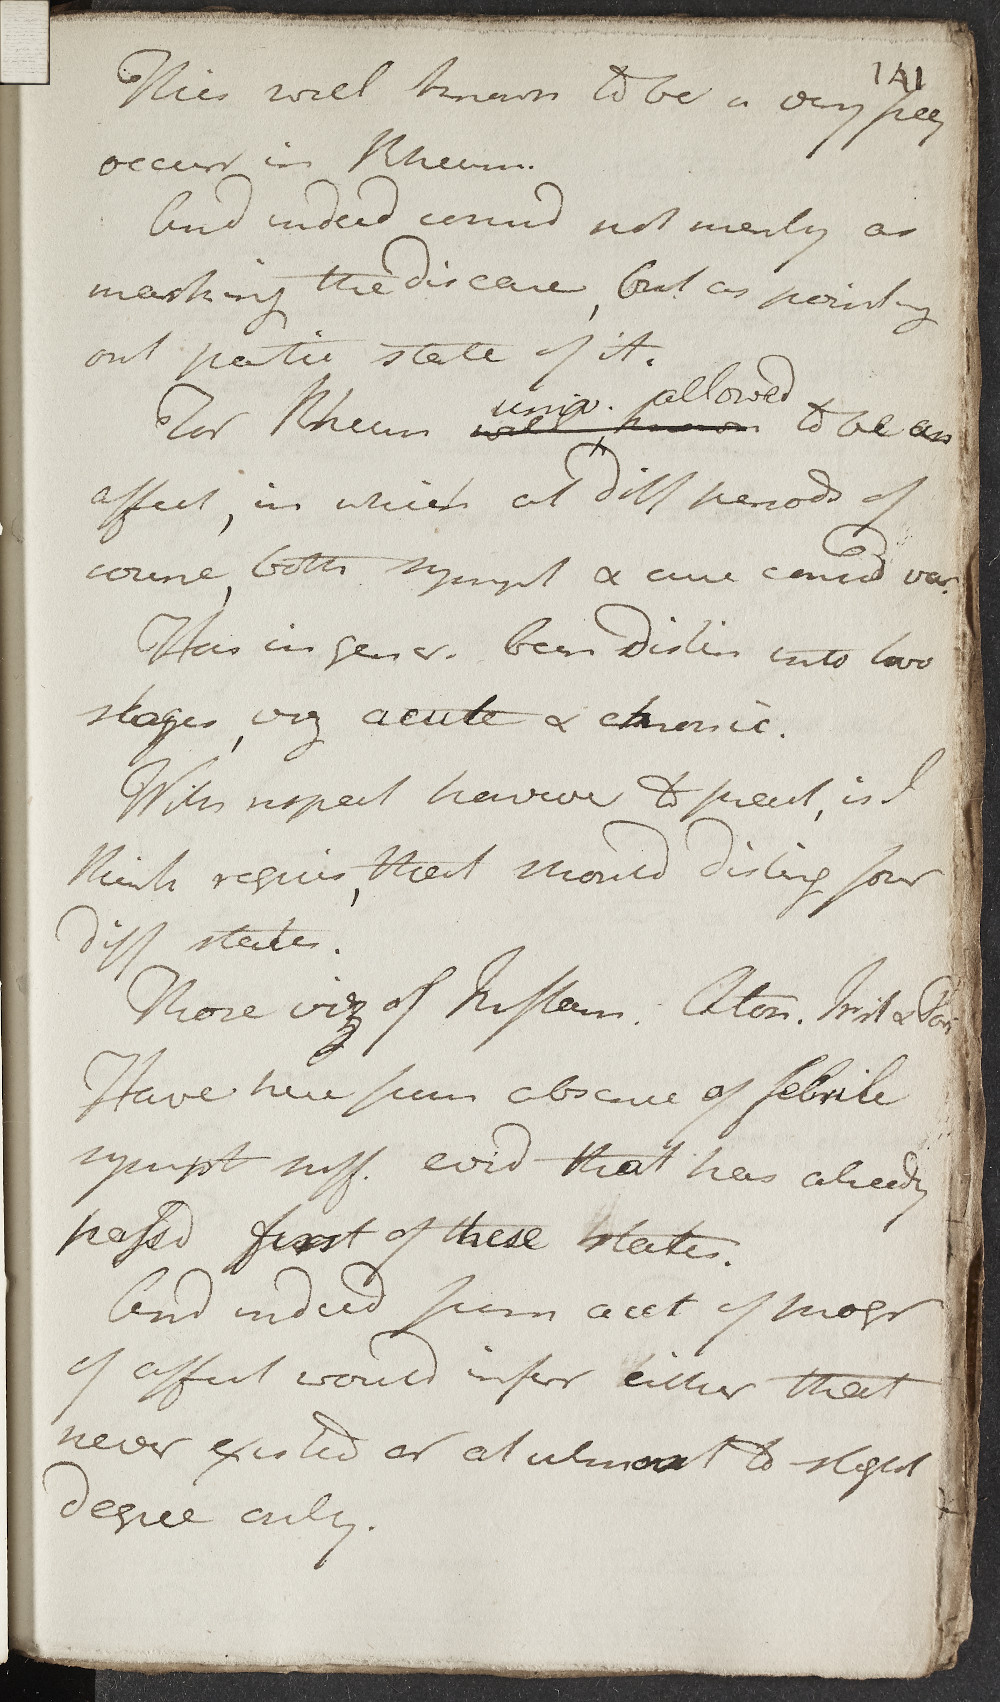 141
This well known to be a very freq
occurr in Rheum.
And indeed consid not merely as
marking the disease, but as pointing
out partic state of it.
For Rheum well known univ. allowed to be an
affect, in which at diff periods of
course, both sympt & cure consid var.
Has in gener. been distin into two
stages, viz acute & chronic.
With respect however to pract, is I
think requis, that should disting four
diff states.
Those viz of Inflam. Aton. Irrit &
Have here from absence of febrile
sympt suff. evid that has already
passd first of these states.
And indeed from acct of progr
of affect would infer either that
never existed or at utmost to slight
degree only.